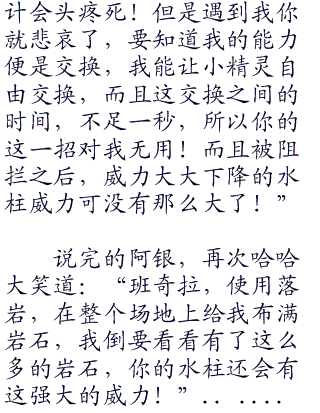 计会头疼死！但是遇到我你
就悲哀了，要知道我的能力
便是交换，我能让小精灵自
由交换，而且这交换之间的
时间，不足一秒，所以你的
这一招对我无用！而且被阻
拦之后，威力大大下降的水
柱威力可没有那么大了！”
说完的阿银，再次哈哈
大笑道：“班奇拉，使用落
岩，在整个场地上给我布满
岩石，我倒要看看有了这么
多的岩石，你的水柱还会有
这强大的威力！”.. ....